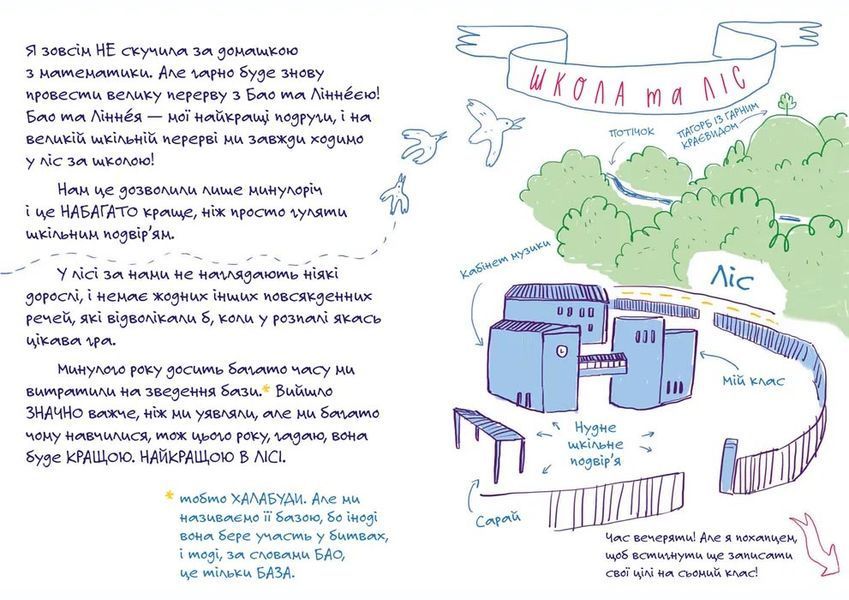 Я зовсім НЕ скучила за домашкою
з математики. Але гарно буде знову
провести велику перерву з Бао та Ліннéєю!
Бао та Ліннéя — мої найкращі подруги, і на
великій шкільній перерві ми завжди ходимо
у ліс за школою!
Нам це дозволили лише минулоріч
і це НАБАГАТО краще, ніж просто гуляти
шкільним подвір'ям.
У лісі за нами не наглядають ніякі
дорослі, і немає жодних інших повсякденних
речей, які відволікали б, коли у розпалі якась
цікава гра.
Минулого року досить багато часу ми
витратили на зведення бази.* Вийшло
ЗНАЧНО важче, ніж ми уявляли, але ми багато
чому навчилися, тож цього року, гадаю, вона
буде КРАЩОЮ. НАЙКРАЩОЮ В ЛІСІ.
* тобто ХАЛАБУДИ. Але ми
називаємо її базою, бо іноді
вона бере участь у битвах,
і тоді, за словами БАО,
це тільки БАЗА.
ШКОЛА та ЛІС
ПОТІЧОК
ПАГОРБ ІЗ ГАРНИМ
КРАЄВИДОМ
Кабінет музики
Ліс
Мій клас
Нудне
шкільне
подвір'я
Сарай
Час вечеряти! Але я похапцем,
щоб встигнути ще записати
свої цілі на сьомий клас!